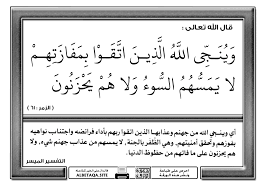 قال الله تعالى :
وَيُنَجِّي اللَّهُ الَّذِينَ اتَّقَوْا بِمَفَازَتِهِمْ
لَا يَمَسُّهُمُ السُّوءُ وَلَا هُمْ يَحْزَنُونَ
( الزمر : ٦١ )
أي وينجي الله من جهنم وعذابها الذين اتقوا ربهم بأداء فرائضه واجتناب نواهيه
بفوزهم وتحقق أمنيتهم، وهي الظفر بالجنة، لا يمسهم من عذاب جهنم شيء، ولا
هم يحزنون على ما فاتهم من حظوظ الدنيا.
التفسير الميسر
ALBETAQA.SITE